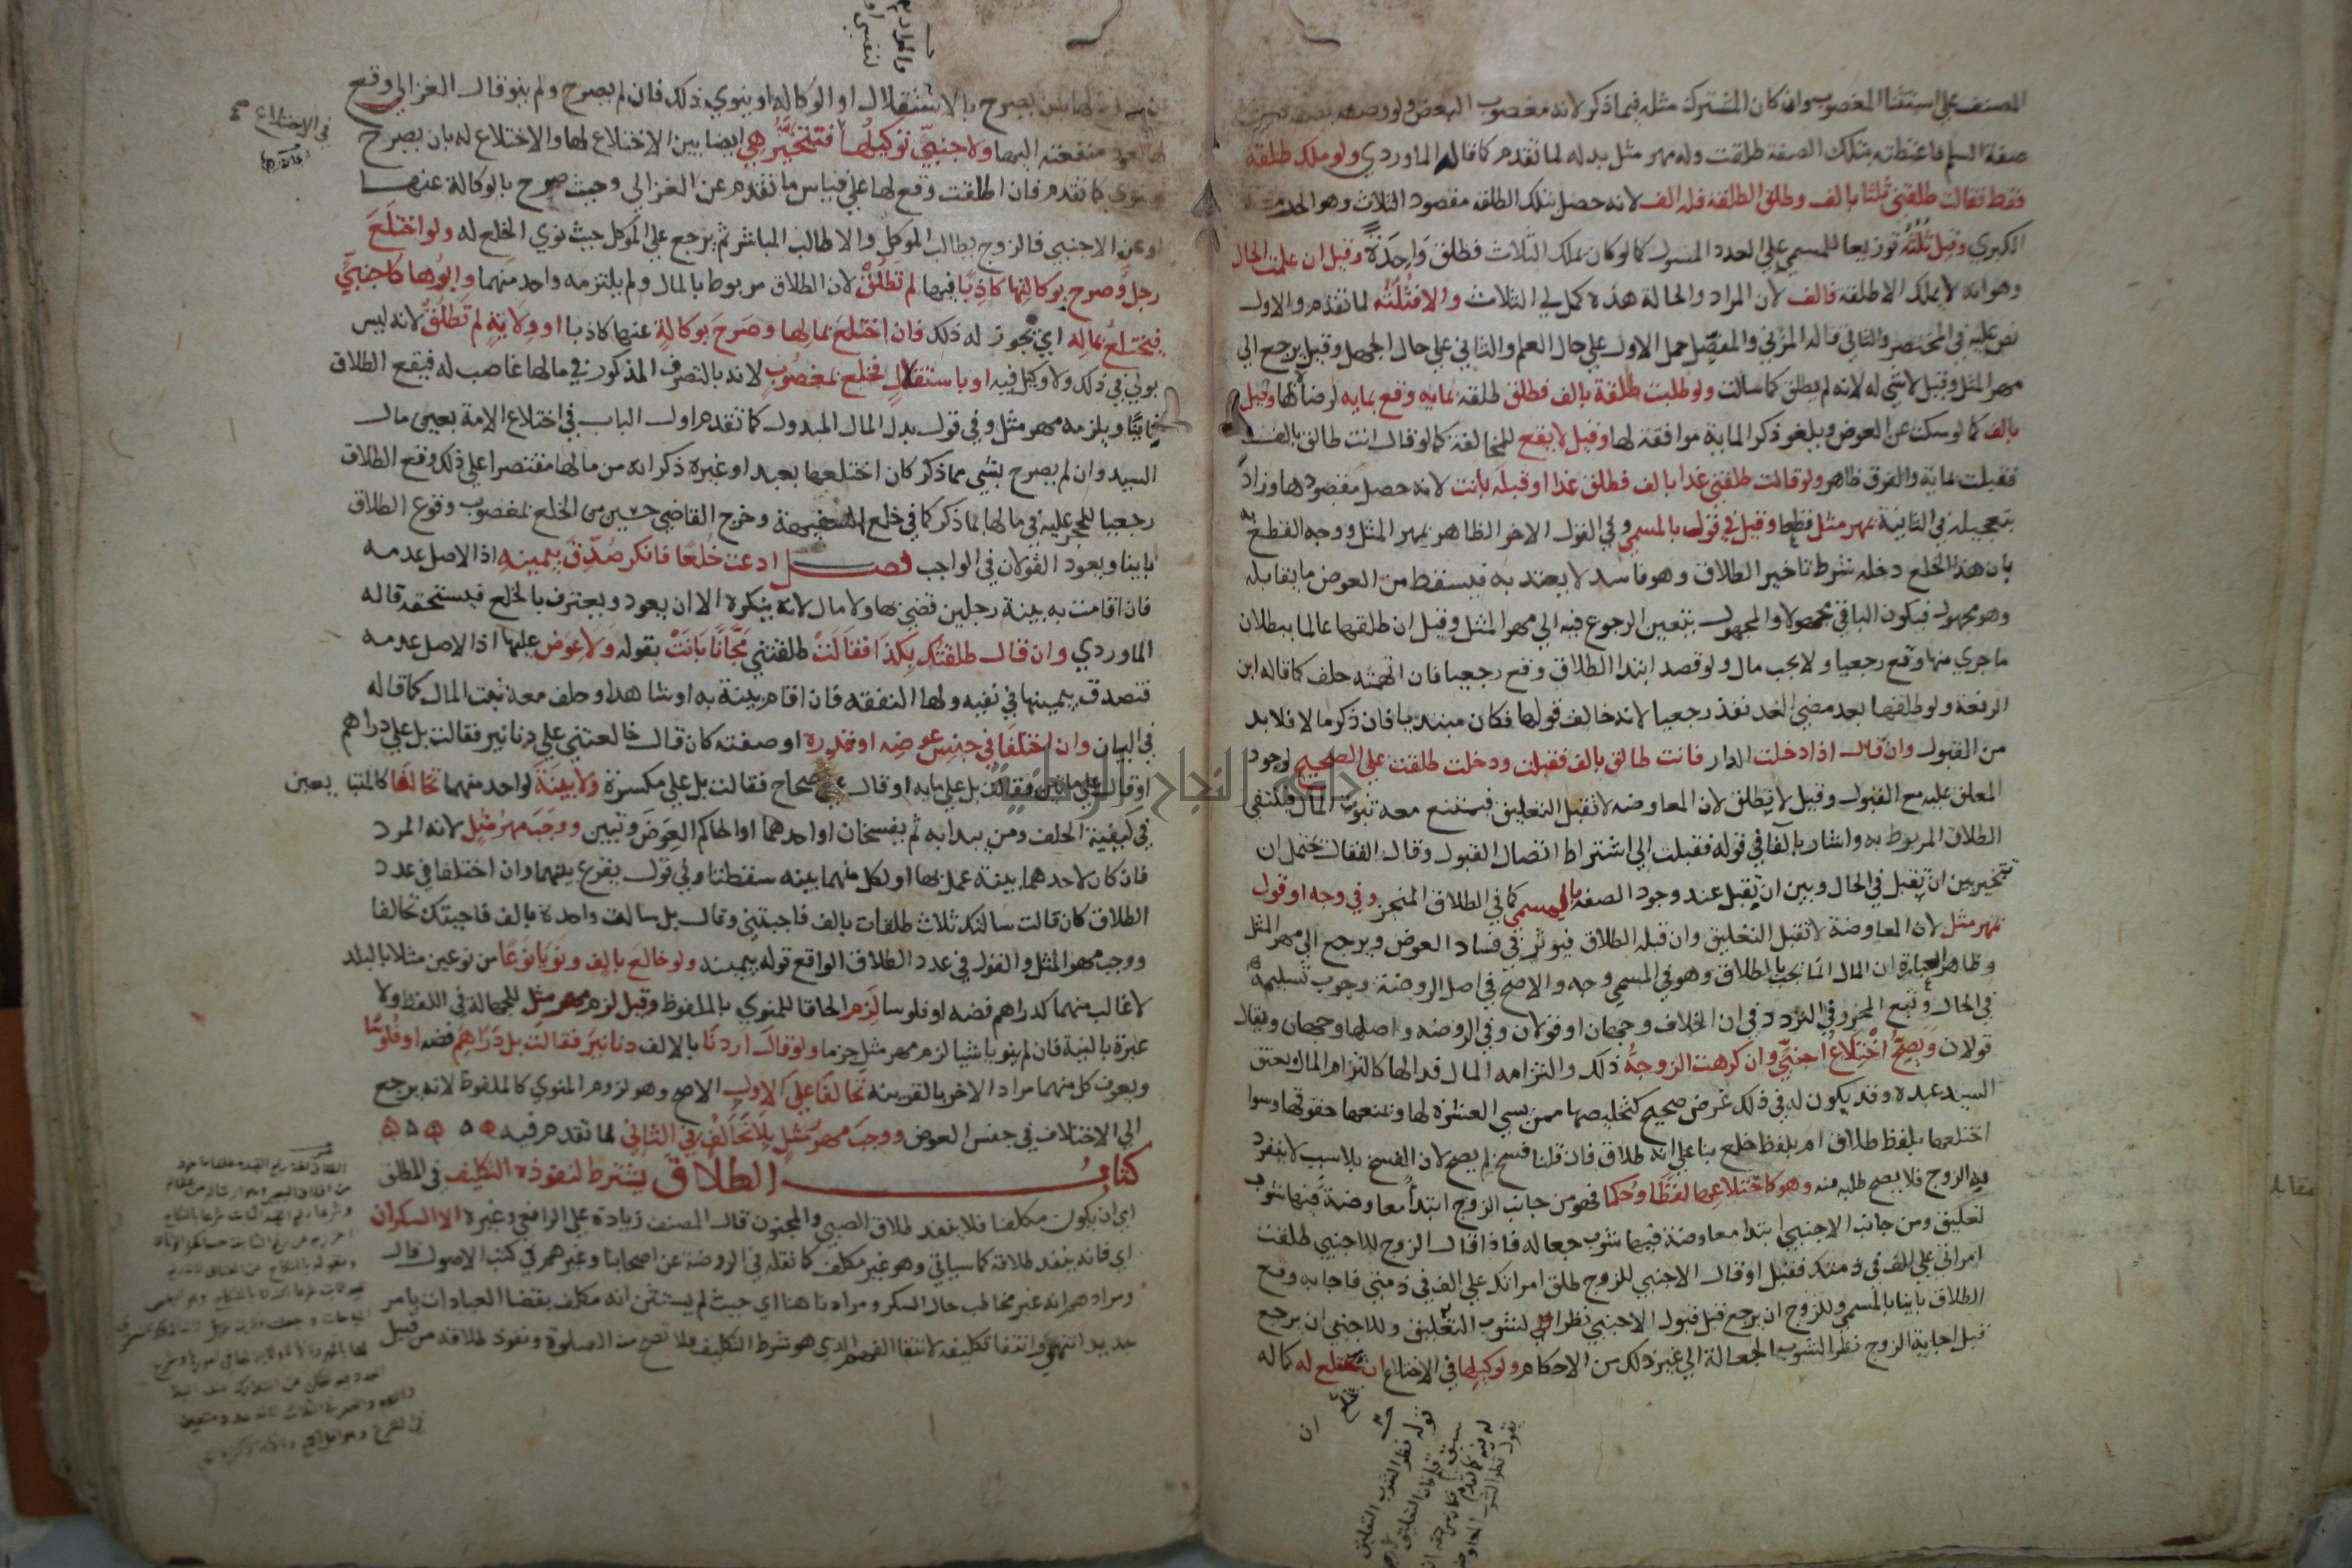 المصنف علي استثنا المغصوب وان كان المشترك مثله فيما ذكر لانه مغصوب البعض ولو وصفه
صفة السلم فاعطته بتلك الصفة طلقت وله مهر مثل بدله لما تقدم كما قاله الماوردي ولو ملك طلقة
فقط فقالت طلقني ثلثا بالف وطلق الطلقة فله الف لانه حصل بتلك الطلقة مقصود الثلاث وهو الحرمة
الكبري وقيل ثلثه توزيعا للمسمي علي العدد المسول كما لو كان يملك الثلاث فطلق واحدة وقيل ان علمت الحال
وهو انه لا يملك الا طلقة فالف لان المراد والحالة هذه كمل لي الثلاث والا فثلثه لما تقدم والاول
نص عليه في المختصر والثاني قاله المزني والمفصل حمل الاول علي حال العلم والثاني علي حال الجهل وقيل يرجع الي
مهر المثل وقيل لا شي له لانه لم يطلق كما سالت ولو طلبت طلقة بالف فطلق طلقة بمايه وقع بمايه لرضاه بها وقيل
بالف كما لو سكت عن العوض ويلغو ذكر الماية موافقة لها وقيل لا يقع للمخالفة كما لو قال انت طالق بالف
فقبلت بماية والفرق ظاهر ولو قالت طلقني غدا بالف فطلق غدا او قبله بانت لانه حصل مقصودها وزاد
بتعجيله في الثانية بمهر مثل قطعا وقيل في قول بالمسمي وفي القول الاخر الظاهر بمهر المثل ووجه القطع به
بان هذا الخلع دخله شرط تاخير الطلاق وهو فاسد لا يعتد به فيسقط من العوض ما يقابله
وهو مجهول فيكون الباقي مجهولا والمجهول يتعين الرجوع فيه الي مهر المثل وقيل ان طلقها عالما ببطلان
ما جري منها وقع رجعيا ولا يجب مال ولو قصد ابتدا الطلاق وقع رجعيا فان اتهمته حلف كما قاله ابن
الرفعة ولو طلقها بعد مضي الغد نفذ رجعيا لانه خالف قولها فكان مبتديا فان ذكر مالا فلا بد
من القبول وان قال اذا دخلت الدار فانت طالق بالف فقبلت ودخلت طلقت علي الصحيح لوجود
المعلق عليه مع القبول وقيل لا تطلق لان المعاوضه لا تقبل التعليق فيمتنع معه ثبوت المال فينتفي
الطلاق المربوط به واشار بالفا في قوله فقبلت الي اشتراط اتصال القبول وقال القفال يحتمل ان
تتخير بين ان تقبل في الحال وبين ان تقبل عند وجود الصفه بالمسمي كما في الطلاق المنجز وفي وجه او قول
بمهر مثل لان المعاوضة لا تقبل التعليق وان قبله الطلاق فيوثر في فساد العوض ويرجع الي مهر المثل
وظاهر العبارة ان المال انما يجب بالطلاق وهو في المسمي وجه والاصح في اصل الروضة وجوب تسليمه
في الحال وتبع المحرر في التردد في ان الخلاف وجهان او قولان وفي الروضه واصلها وجهان ويقال
قولان ويصح اختلاع اجنبي وان كرهت الزوجة ذلك والتزامه المال فدا لها كالتزام المال بعتق
السيد عبده وقد يكون له في ذلك غرض صحيح كتخليصها ممن يسي العشرة لها ويمنعها حقوقها وسوا
اختلعها بلفظ طلاق ام بلفظ خلع بنا علي انه طلاق فان قلنا فسخ لم يصح لان الفسخ بلا سبب لا ينفرد
به الزوج فلا يصح طلبه منه وهو كاختلاعها لفظا وحكما فهو من جانب الزوج ابتدا معاوضة فيها شوب
تعليق ومن جانب الاجنبي ابتدا معاوضة فيها شوب جعاله فاذا قال الزوج للاجنبي طلقت
امراتي علي الف في ذمتك فقبل او قال الاجنبي للزوج طلق امراتك علي الف في ذمتي فاجابه وقع
الطلاق باينا بالمسمي وللزوج ان يرجع قبل قبول الاجنبي نظرا لشوب التعليق وللاجنبي ان يرجع
قبل اجابة الزوج نظرا لشوب الجعالة الي غير ذلك من الاحكام ولوكيلها في الاختلاع ان يختلع له كما له
ان
مقابله
لها بان يصرح بالاستقلال او الوكاله او ينوي ذلك فان لم يصرح ولم ينو قال الغزالي وقع
لها لعود منفعته اليها ولاجنبي توكيلها فتتخير هي ايضا بين الاختلاع لها والاختلاع له بان يصرح
او ينوي كما تقدم فان اطلقت وقع لها علي قياس ما تقدم عن الغزالي وحيث صرح بالوكالة عنها
او عن الاجنبي فالزوج يطالب الموكل والا طالب المباشر ثم يرجع علي الموكل حيث نوي الخلع له ولو اختلع
رجل وصرح بوكالتها كاذبا فيها لم تطلق لان الطلاق مربوط بالمال ولم يلتزمه واحد منهما وابوها كاجنبي
فيختلع بماله اي يجوز له ذلك فان اختلع بمالها وصرح بوكالة عنها كاذبا او ولاية لم تطلق لانه ليس
بولي في ذلك ولا وكيل فيه او باستقلال فخلع بمغصوب لانه بالتصرف المذكور في مالها غاصب له فيقع الطلاق
باينا ويلزمه مهر مثل وفي قول بدل المال المبدول كما تقدم اول الباب في اختلاع الامة بعين مال
السيد وان لم يصرح بشي مما ذكر كان اختلعها بعبد او غيره ذكر انه من مالها مقتصرا علي ذلك وقع الطلاق
رجعيا للحجر عليه في مالها بما ذكر كما في خلع السفيهة وخرج القاضي حسين من الخلع بمغصوب وقوع الطلاق
باينا ويعود القولان في الواجب فصل ادعت خلعا فانكر صدق بيمينه اذ الاصل عدمه
فان اقامت به بينة رجلين قضي بها ولا مال لانه ينكره الا ان يعود ويعترف بالخلع فيستحقه قاله
الماوردي وان قال طلقتك بكذا فقالت طلقتني مجانا بانت بقوله ولا عوض عليها اذ الاصل عدمه
فتصدق بيمينها في نفيه ولها النفقه فان اقام بينة به او شاهدا وحلف معه ثبت المال كما قاله
في البيان وان اختلفا في جنس عوضه او قدره او صفته كان قال خالعتني علي دنانير فقالت بل علي دراهم
او قال علي مائتين فقالت بل علي مايه او قال علي صحاح فقالت بل علي مكسرة ولا بينة لواحد منهما تحالفا كالمتبايعين
في كيفية الحلف ومن يبدا به ثم يفسخان او احدهما او الحاكم العوض وتبين ووجب مهر مثل لانه المرد
فان كان لاحدهما بينة عمل بها او لكل منهما بينه سقطتا وفي قول يقرع بينهما وان اختلفا في عدد
الطلاق كان قالت سالتك ثلاث طلقات بالف فاجبتني وقال بل سالت واحدة بالف فاجبتك تحالفا
ووجب مهر المثل والقول في عدد الطلاق الواقع قوله بيمينه ولو خالع بالف ونويا نوعا من نوعين مثلا بالبلد
لا غالب منهما كدراهم فضه او فلوسا لزم الحاقا للمنوي بالملفوظ وقيل لزم مهر مثل للجهالة في اللفظ ولا
عبرة بالنية فان لم ينويا شيا لزم مهر مثل جزما ولو قال اردنا بالالف دنانير فقالت بل دراهم فضه او فلوسا
ويعرف كل منهما مراد الاخر بالقرينة تحالفا علي الاول الاصح وهو لزوم المنوي كالملفوظ لانه يرجع
الي الاختلاف في جنس العوض ووجب مهر مثل بلا تحالف في الثاني لما تقدم فيه
كتاب الطلاق يشترط لنفوذه التكليف في المطلق
اي ان يكون مكلفا فلا ينفذ طلاق الصبي والمجنون قال المصنف زيادة علي الرافعي وغيره الا السكران
اي فانه ينفذ طلاقه كما سياتي وهو غير مكلف كما نقله في الروضة عن اصحابنا وغيرهم في كتب الاصول قال
ومرادهم انه غير مخاطب حال السكر ومرادنا هنا اي حيث لم يستثن انه مكلف بقضا العبادات بامر
جديد انتهي وانتفا تكليفه لانتفا الفهم الذي هو شرط التكليف فلا تصح منه الصلوة ونفوذ طلاقه من قبيل
في الاختلاع